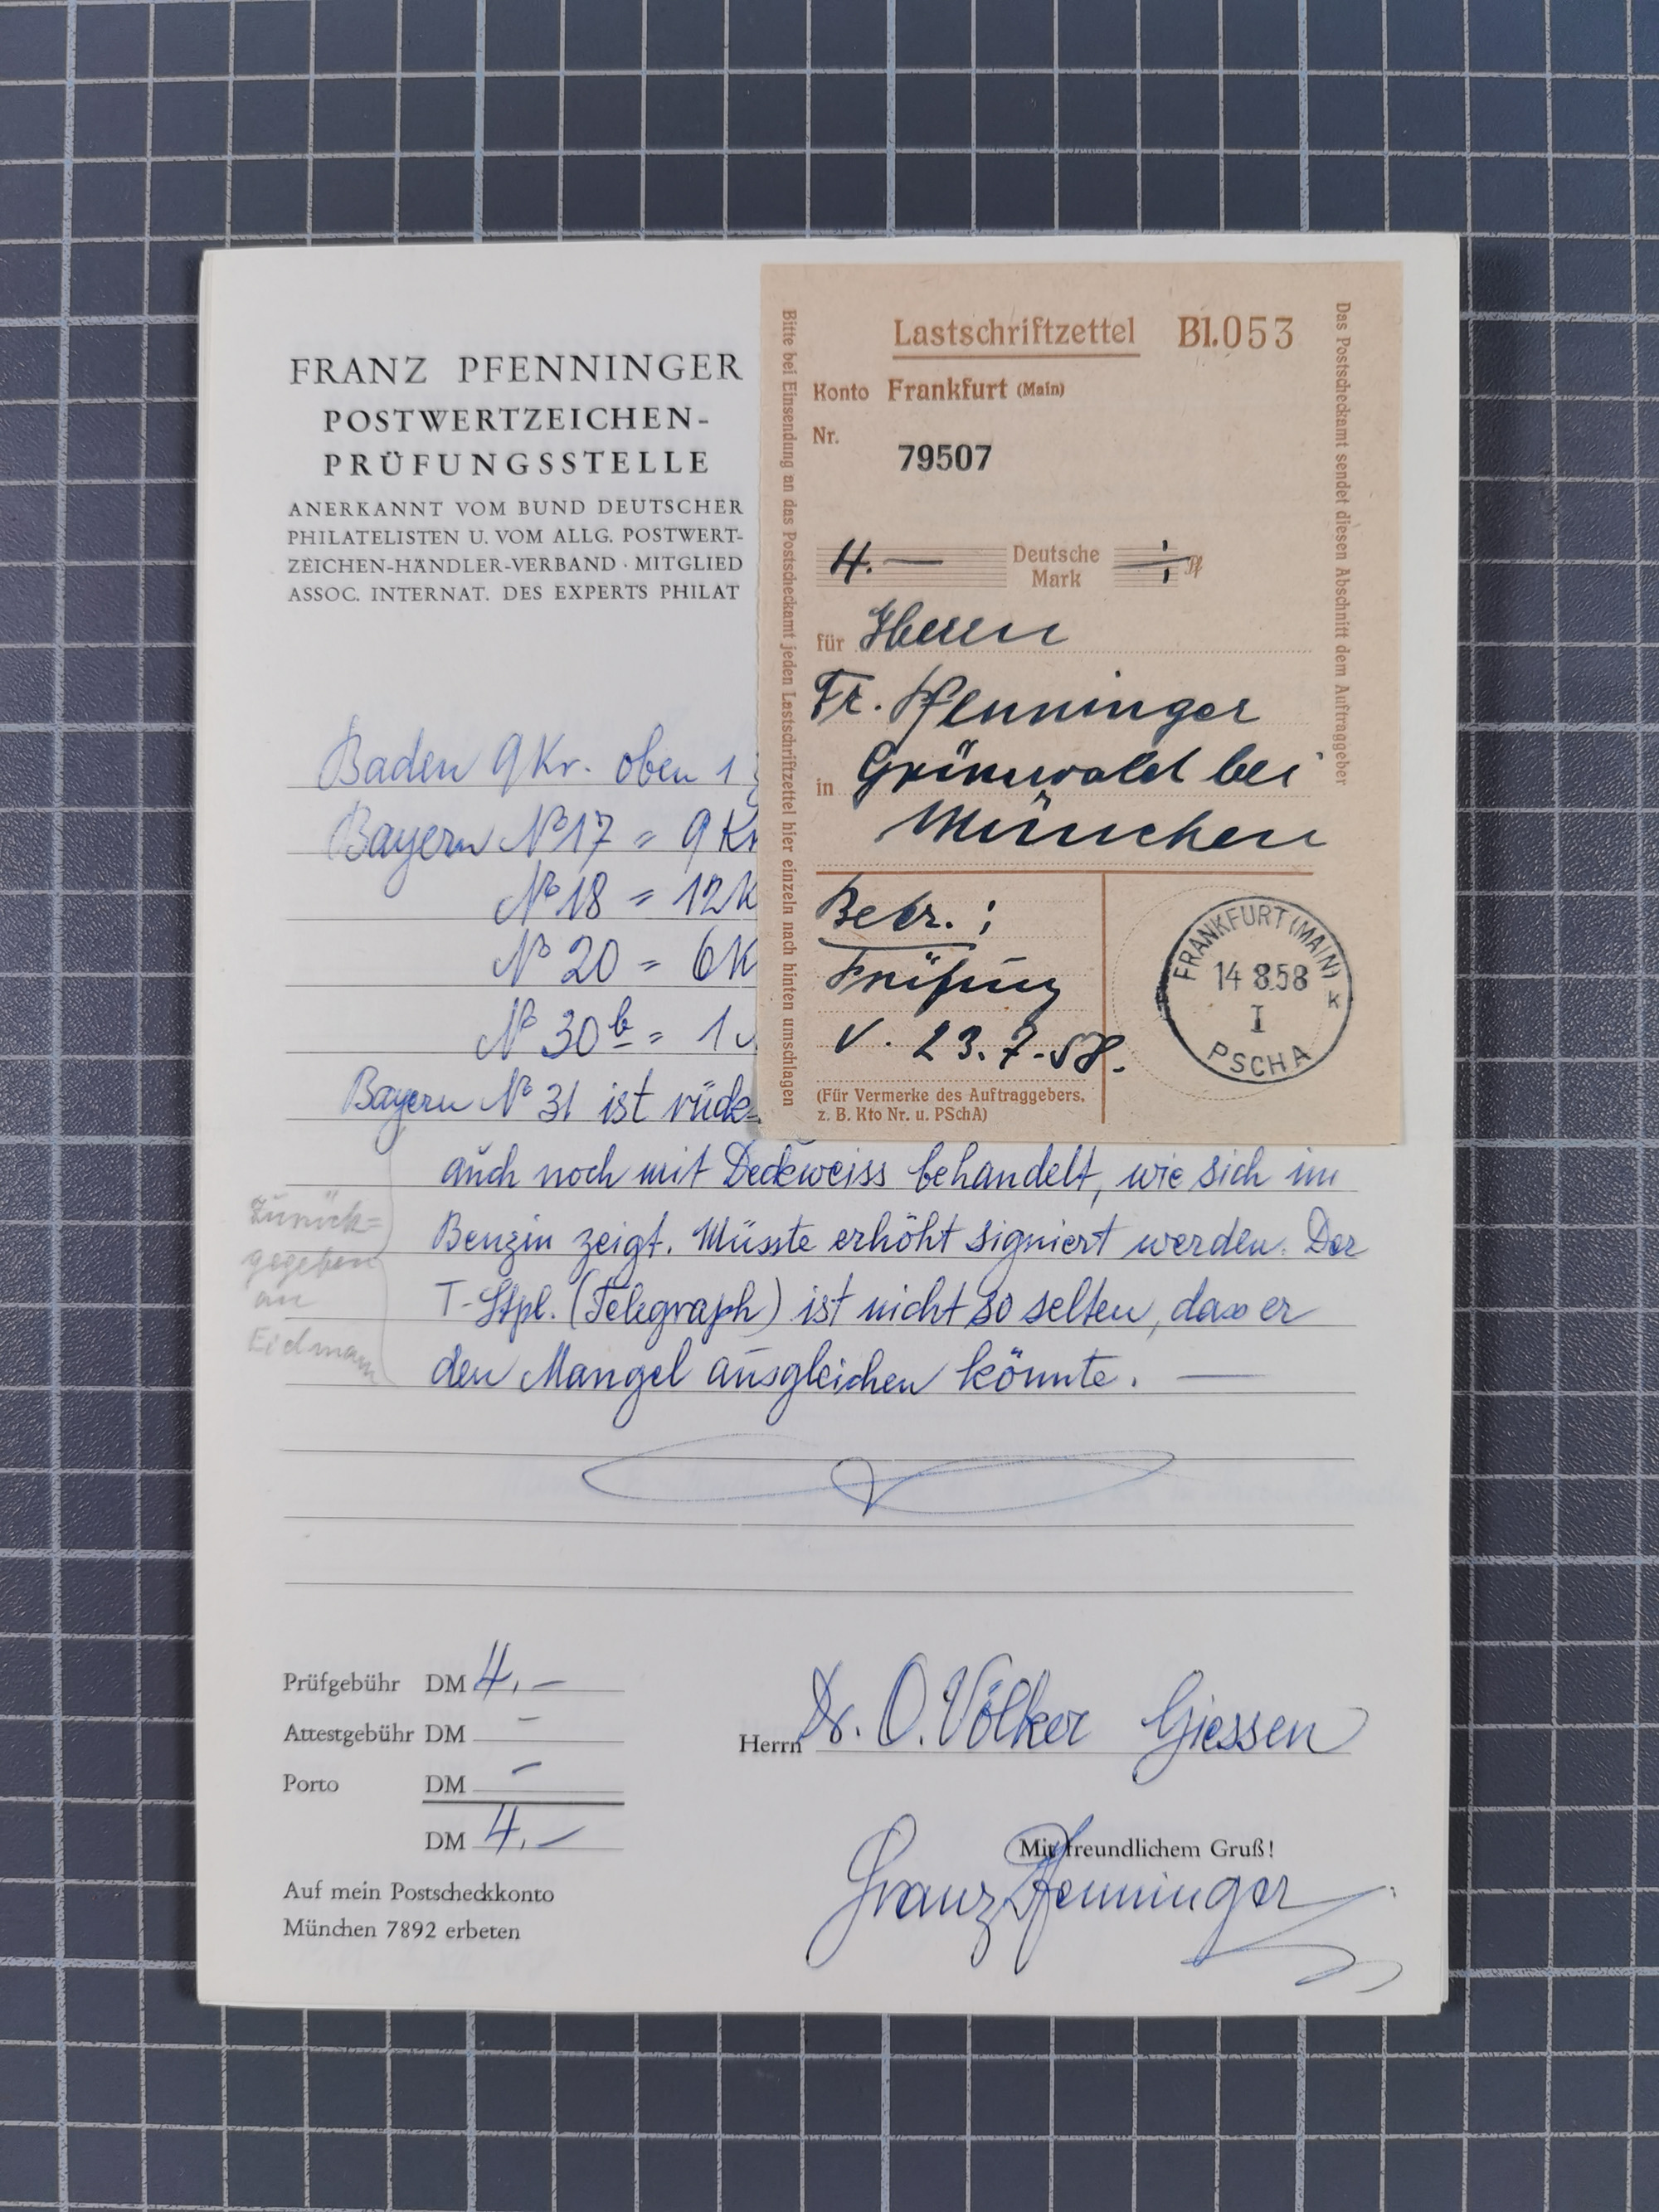 FRANZ PFENNINGER
POSTWERTZEICHEN-
PRÜFUNGSSTELLE
ANERKANNT VOM BUND DEUTSCHER
PHILATELISTEN U. VOM ALLG. POSTWERT-
ZEICHEN-HÄNDLER-VERBAND · MITGLIED
ASSOC. INTERNAT. DES EXPERTS PHILAT
Bitte bei Einsendung an das Postscheckamt jeden Lastschriftzettel hier einzeln nach hinten umschlagen
Lastschriftzettel Bl.053
Konto Frankfurt (Main)
Nr.
79507
4.— Deutsche Mark ÷ Pf
für Herrn
Fr. Pfenninger
in Grünwald bei
München
Betr.:
Prüfung
v. 23.7.58.
(Für Vermerke des Auftraggebers,
z. B. Kto Nr. u. PSchA)
FRANKFURT (MAIN)
14 8.58
I
k
PSCHA
Das Postscheckamt sendet diesen Abschnitt dem Auftraggeber
Baden 9 Kr. oben 1
Bayern No 17 = 9 Kr
No 18 = 12 K
No 20 = 6 K
No 30b = 1
Bayern No 31 ist rück-
auch noch mit Deckweiss behandelt, wie sich im
Benzin zeigt. Müsste erhöht signiert werden. Der
T-Stpl. (Telegraph) ist nicht so selten, dass er
den Mangel ausgleichen könnte. —
Zurück=
gegeben
an
Eidmann
Prüfgebühr DM 4,–
Attestgebühr DM –
Porto DM –
DM 4,–
Auf mein Postscheckkonto
München 7892 erbeten
Herrn Dr. O. Völker Giessen
Mit freundlichem Gruß!
Franz Pfenninger